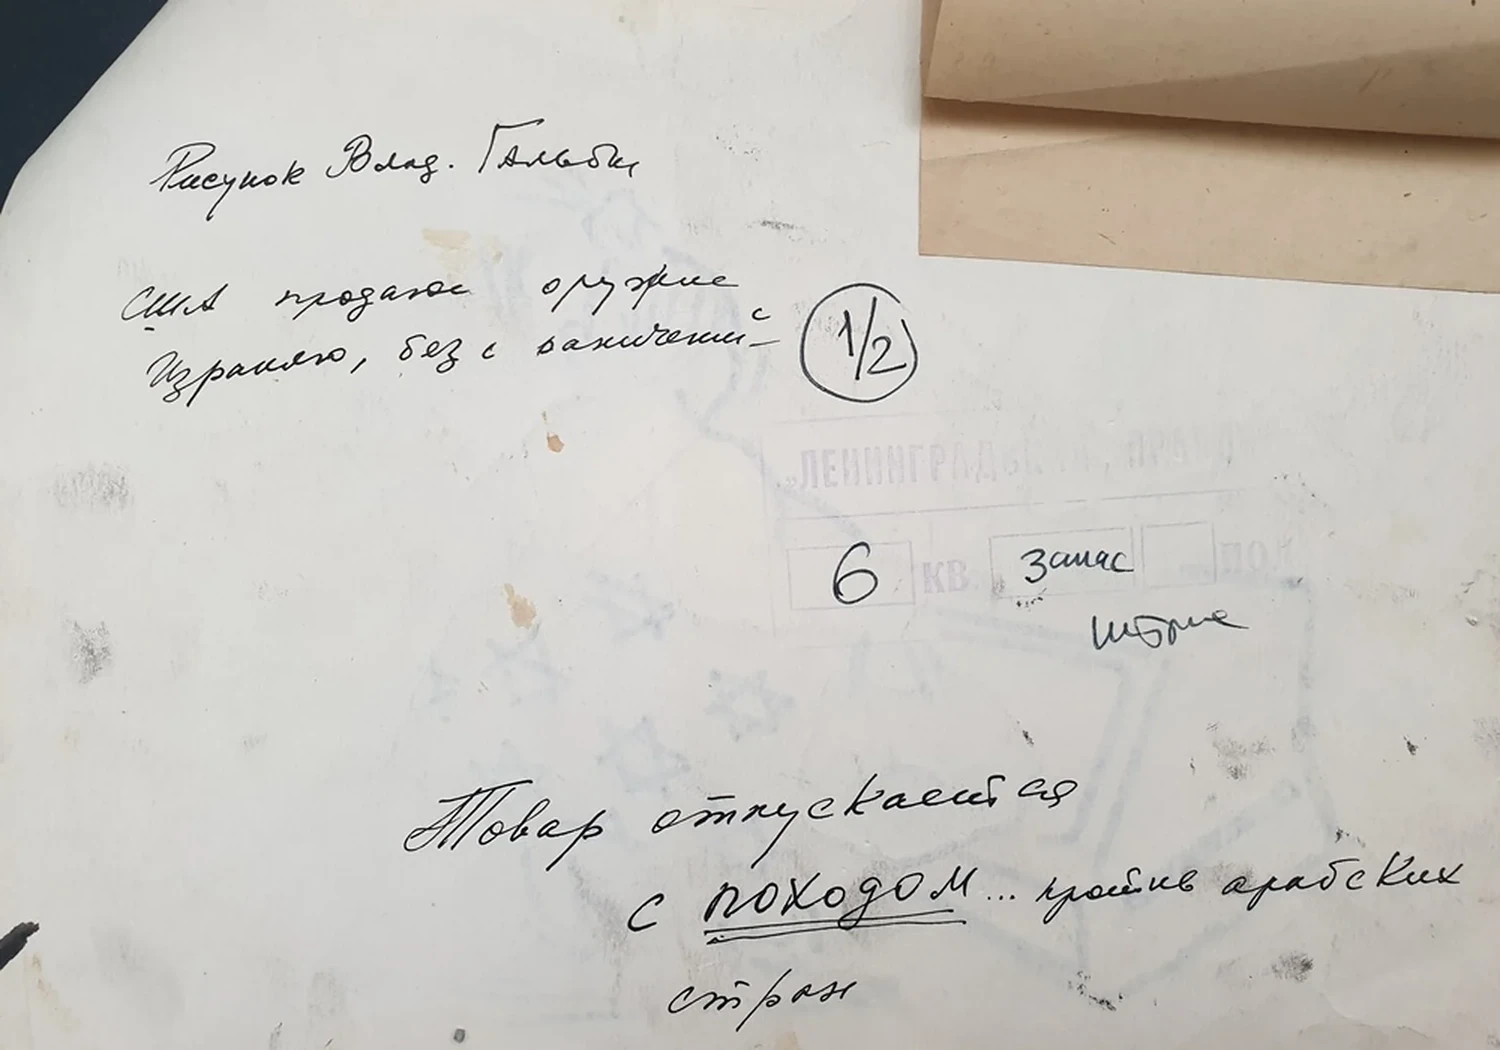 Рисунок Влад. Гальбы
США продают оружие
Израилю, без
1/2
„ЛЕНИНГРАДСКАЯ ПРАВДА“
6 КВ. Запас ПОЛ
штрих
Товар отпускается
с ПОХОДОМ... против арабских
стран